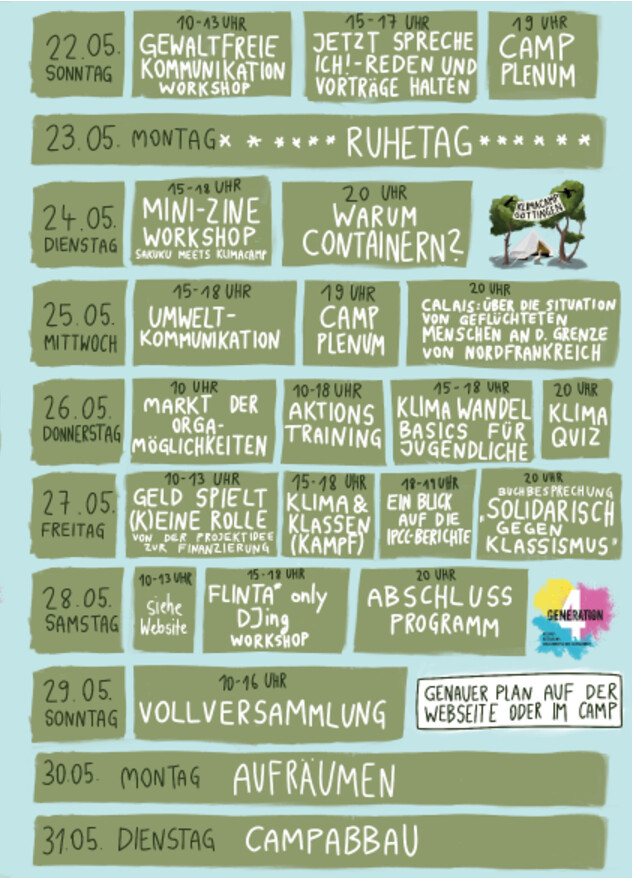 22.05.
SONNTAG
10-13 UHR
GEWALTFREIE
KOMMUNIKATION
WORKSHOP
15-17 UHR
JETZT SPRECHE
ICH!-REDEN UND
VORTRÄGE HALTEN
19 UHR
CAMP
PLENUM
23.05. MONTAG****** RUHETAG*******
24.05.
DIENSTAG
15-18 UHR
MINI-ZINE
WORKSHOP
SAKUKU MEETS KLIMACAMP
20 UHR
WARUM
CONTAINERN?
KLIMACAMP
GÖTTINGEN
25.05.
MITTWOCH
15-18 UHR
UMWELT-
KOMMUNIKATION
19 UHR
CAMP
PLENUM
20 UHR
CALAIS:ÜBER DIE SITUATION
VON GEFLÜCHTETEN
MENSCHEN AN D. GRENZE
VON NORDFRANKREICH
26.05.
DONNERSTAG
10 UHR
MARKT DER
ORGA-
MÖGLICHKEITEN
10-18 UHR
AKTIONS
TRAINING
15-18 UHR
KLIMA WANDEL
BASICS FÜR
JUGENDLICHE
20 UHR
KLIMA
QUIZ
27.05.
FREITAG
10-13 UHR
GELD SPIELT
(K)EINE ROLLE
VON DER PROJEKTIDEE
ZUR FINANZIERUNG
15-18 UHR
KLIMA&
KLASSEN
(KAMPF)
18-19UHR
EIN BLICK
AUF DIE
IPCC-BERICHTE
20 UHR
BUCHBESPRECHUNG
„SOLIDARISCH
GEGEN
KLASSISMUS"
28.05.
SAMSTAG
10-13 UHR
Siehe
Website
15-18 UHR
FLINTA* only
DJing
WORKSHOP
20 UHR
ABSCHLUSS
PROGRAMM
GENERATION
4
29.05.
SONNTAG
10-16 UHR
VOLLVERSAMMLUNG
GENAUER PLAN AUF DER
WEBSEITE ODER IM CAMP
30.05. MONTAG AUFRÄUMEN
31.05. DIENSTAG CAMPABBAU